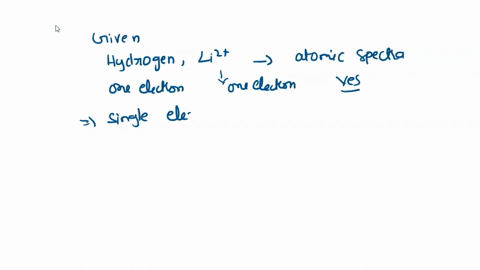 Given
Hydrogen, Li²⁺ → atomic spectra
one electron ↓ one electron yes
⇒ Single ele